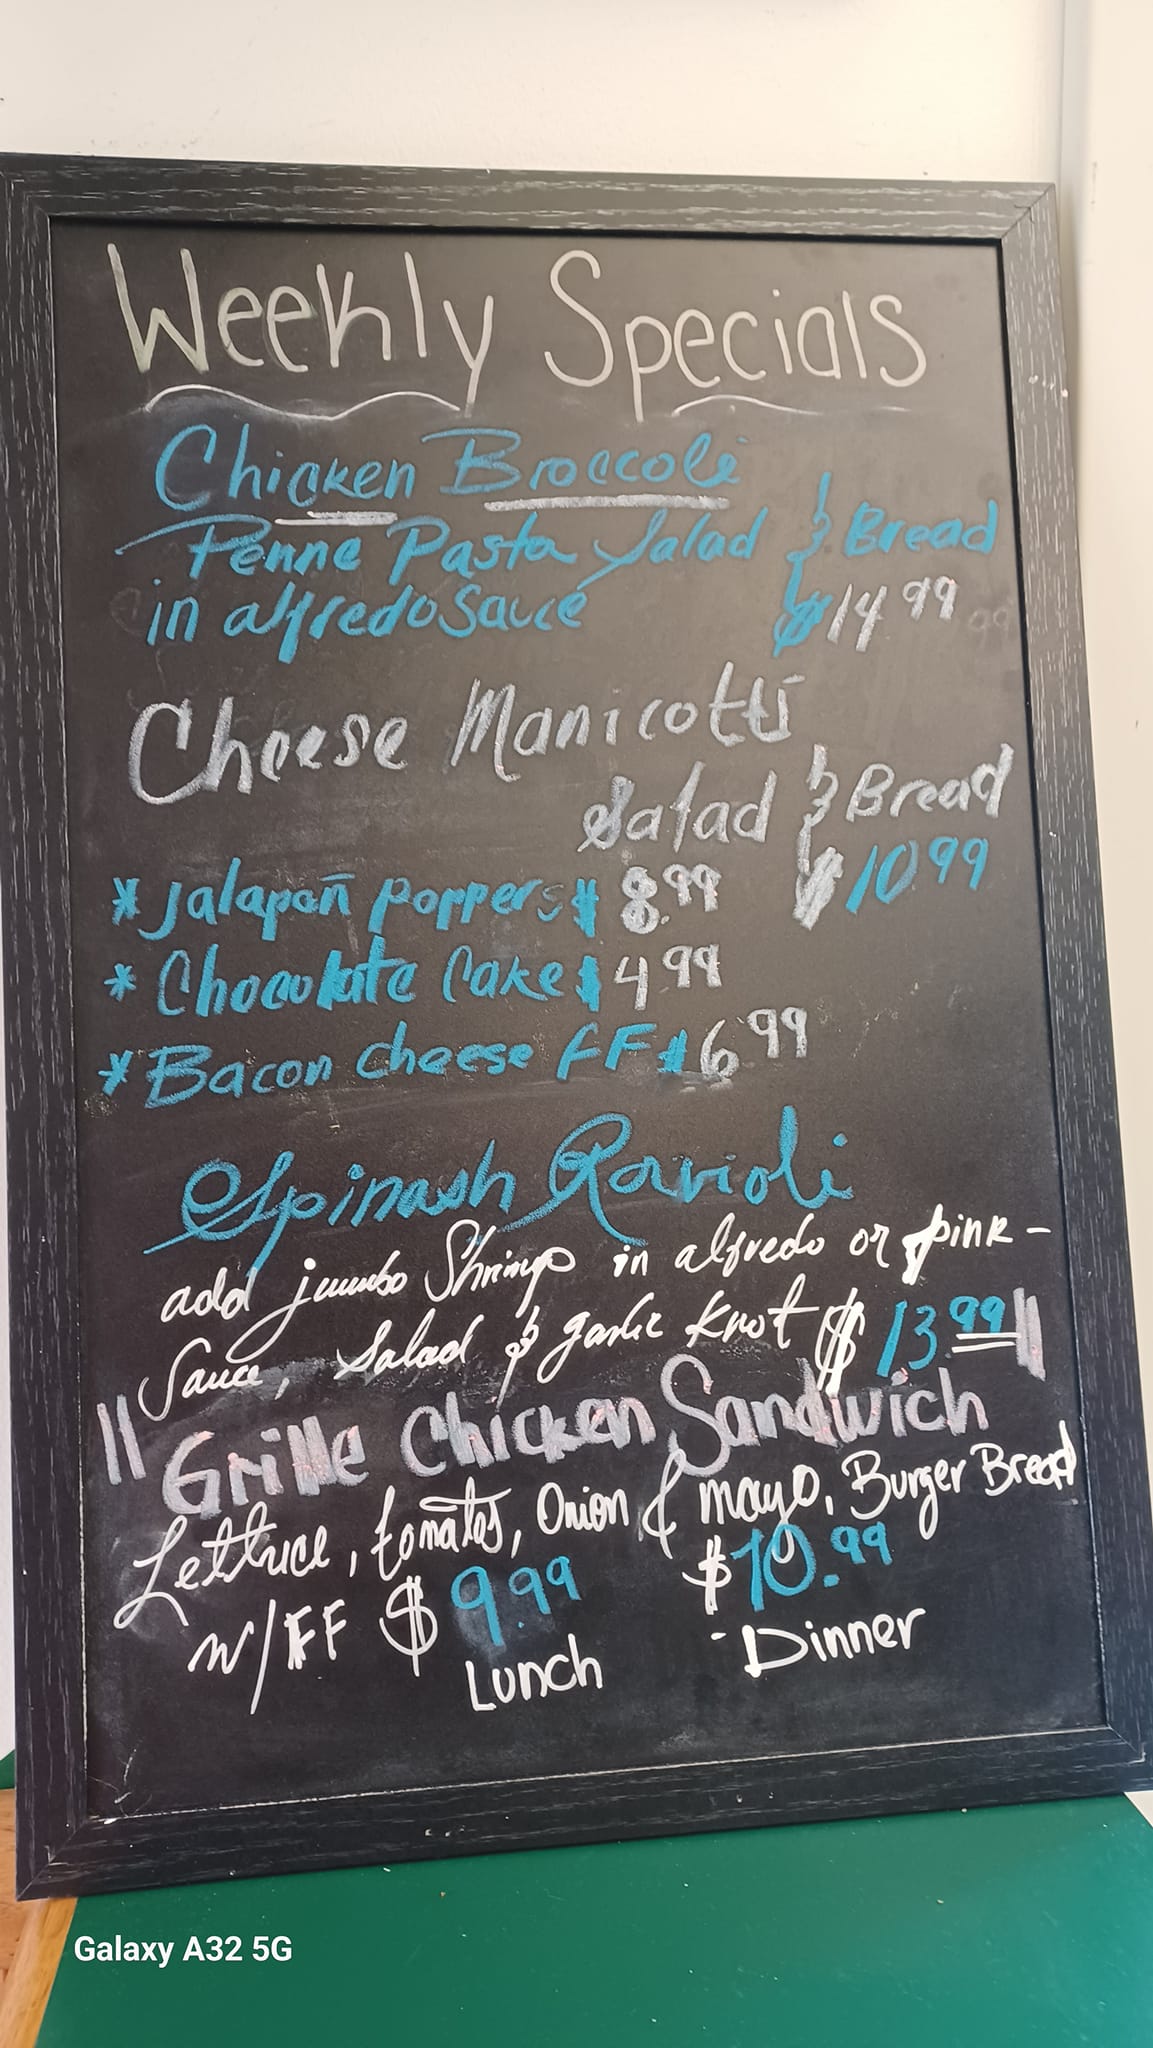 Weekly Specials
Chicken Broccoli
Penne Pasta Salad & Bread
in alfredo Sauce $14 99
Cheese Manicotti
Salad & Bread
$10 99
*Jalapoñ poppers $8.99
*Chocolate Cake $4 99
*Bacon cheese FF $6 99
Spinash Ravioli
add jumbo Shrimp in alfredo or pink-
Sauce, Salad & garlic Knot $13.99
"Grille Chicken Sandwich"
Lettuce, tomates, Onion & mayo, Burger Bread
w/FF $9.99 $10.99
Lunch -Dinner
Galaxy A32 5G